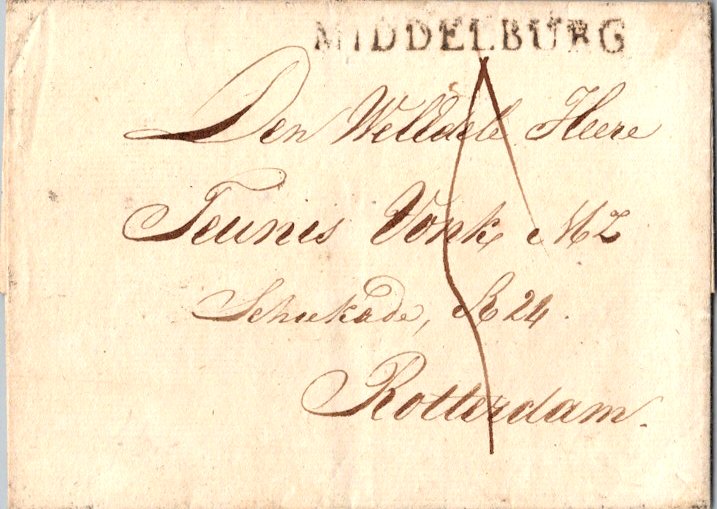 MIDDELBURG
Den WelEdele Heere
Teunis Vonk, MZ
Schiekade, 24.
Rotterdam.